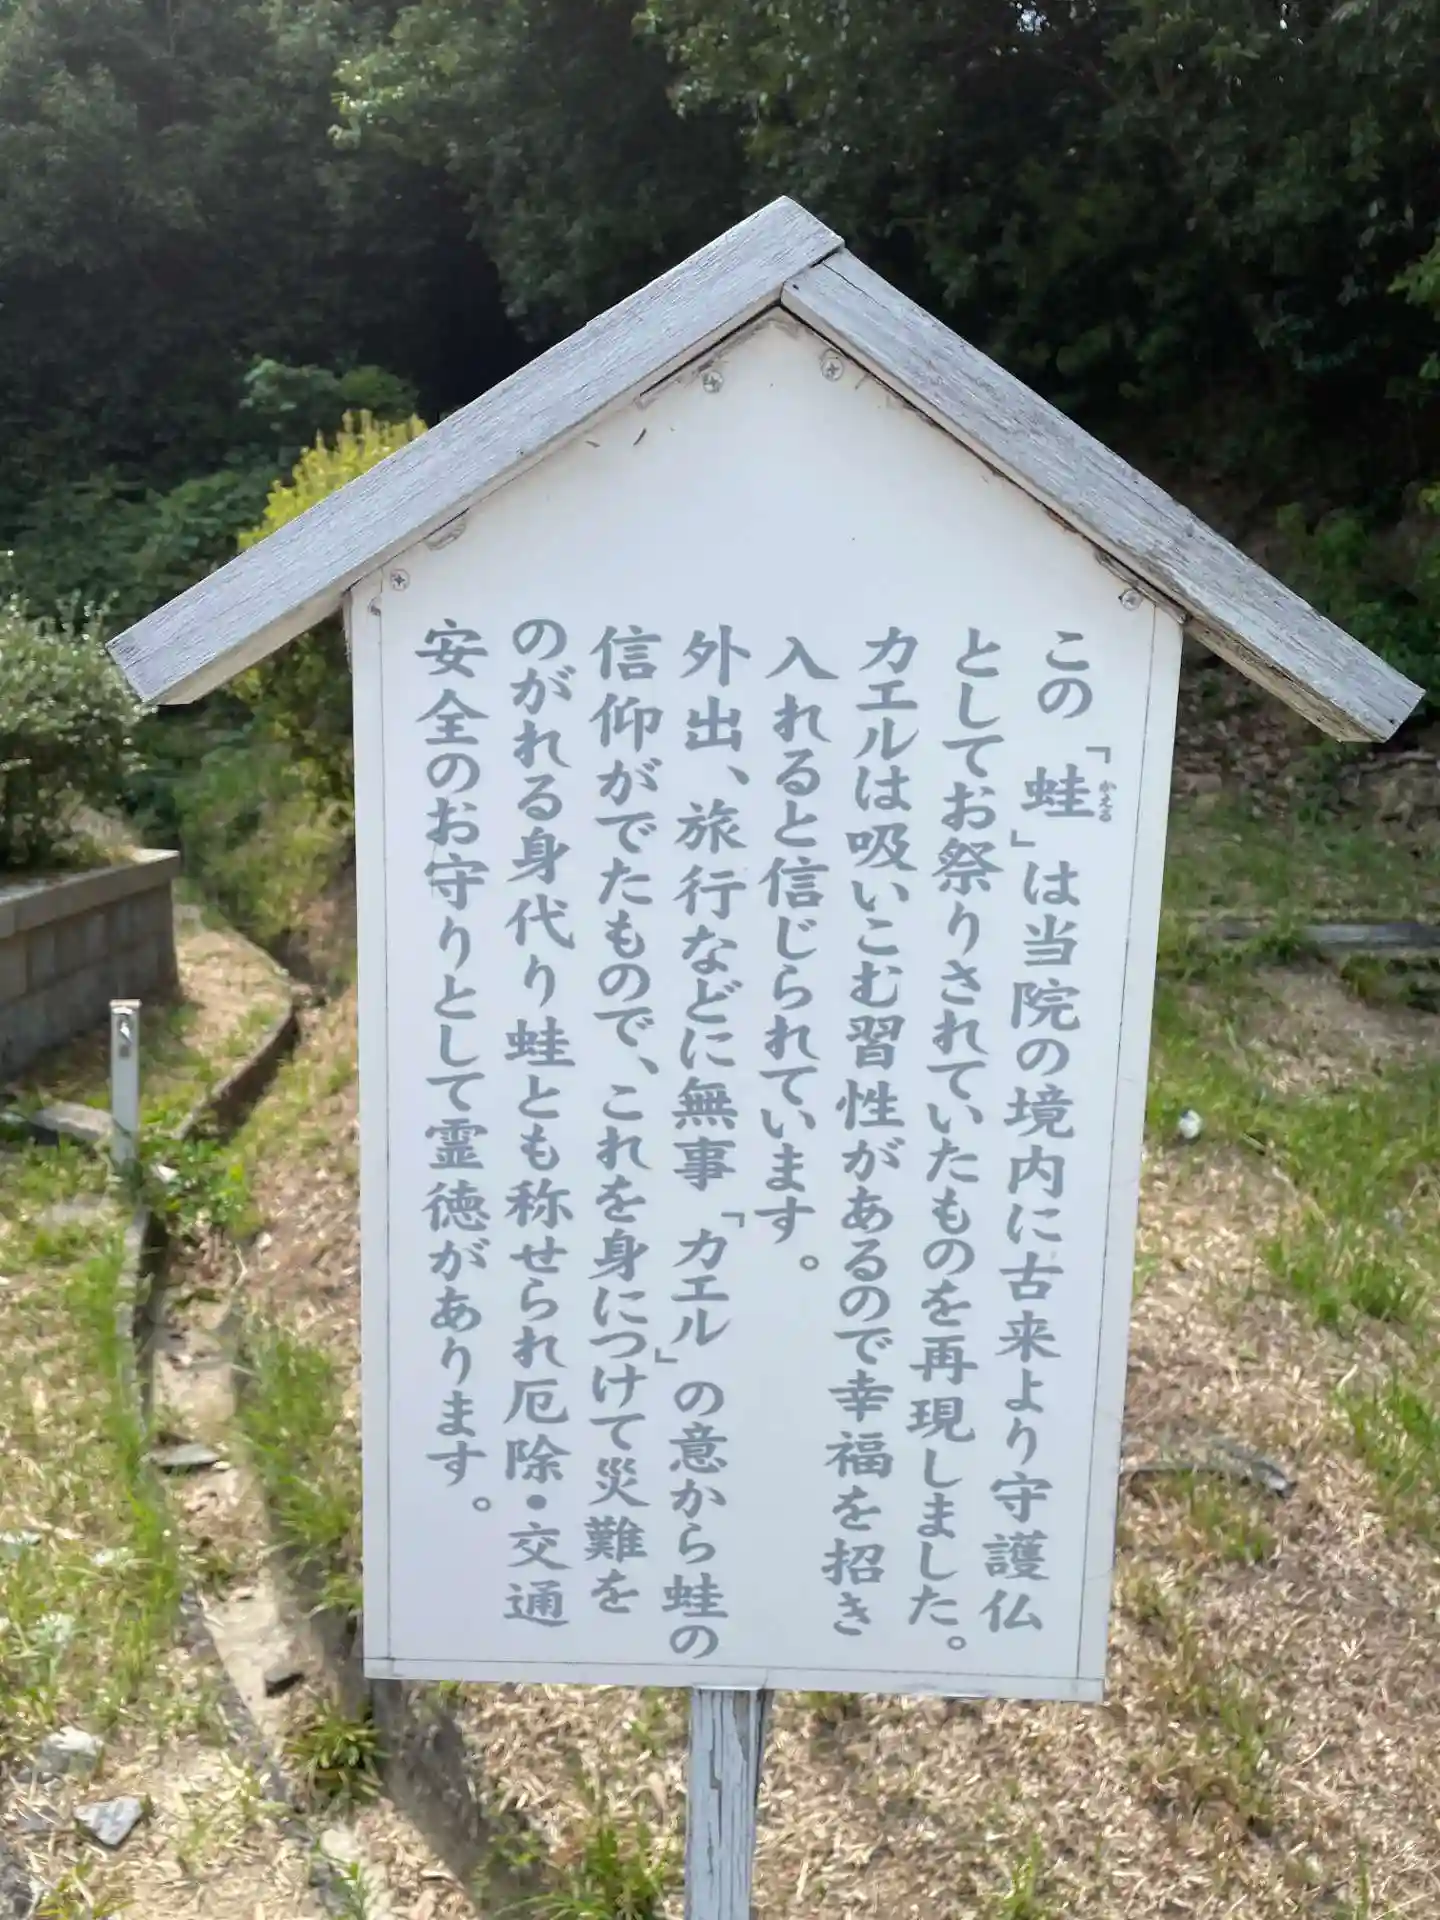 この「蛙」は当院の境内に古来より守護仏
かえる
としてお祭りされていたものを再現しました。
カエルは吸いこむ習性があるので幸福を招き
入れると信じられています。
外出、旅行などに無事「カエル」の意から蛙の
信仰がでたもので、これを身につけて災難を
のがれる身代り蛙とも称せられ厄除・交通
安全のお守りとして霊徳があります。